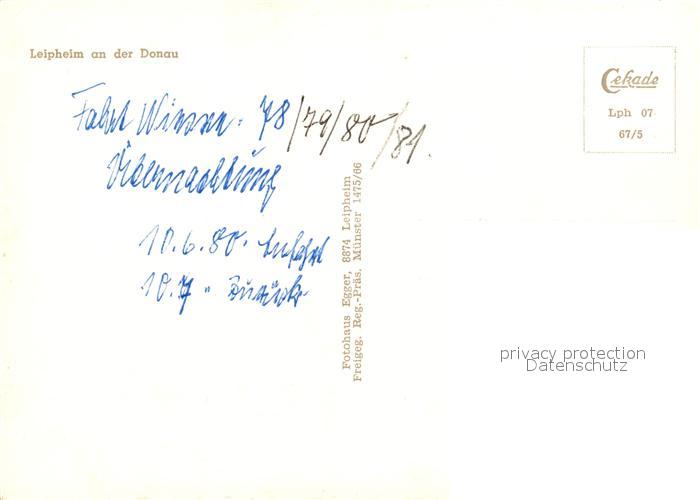 Leipheim an der Donau
Cekade
Lph 07
67/5
Fahrt 78/79/80/81.
Übernachtung
10.6.80.
10.7 " zurück
Fotohaus Egger, 8874 Leipheim
Freigeg. Reg.-Präs. Münster 1475/66
privacy protection
Datenschutz